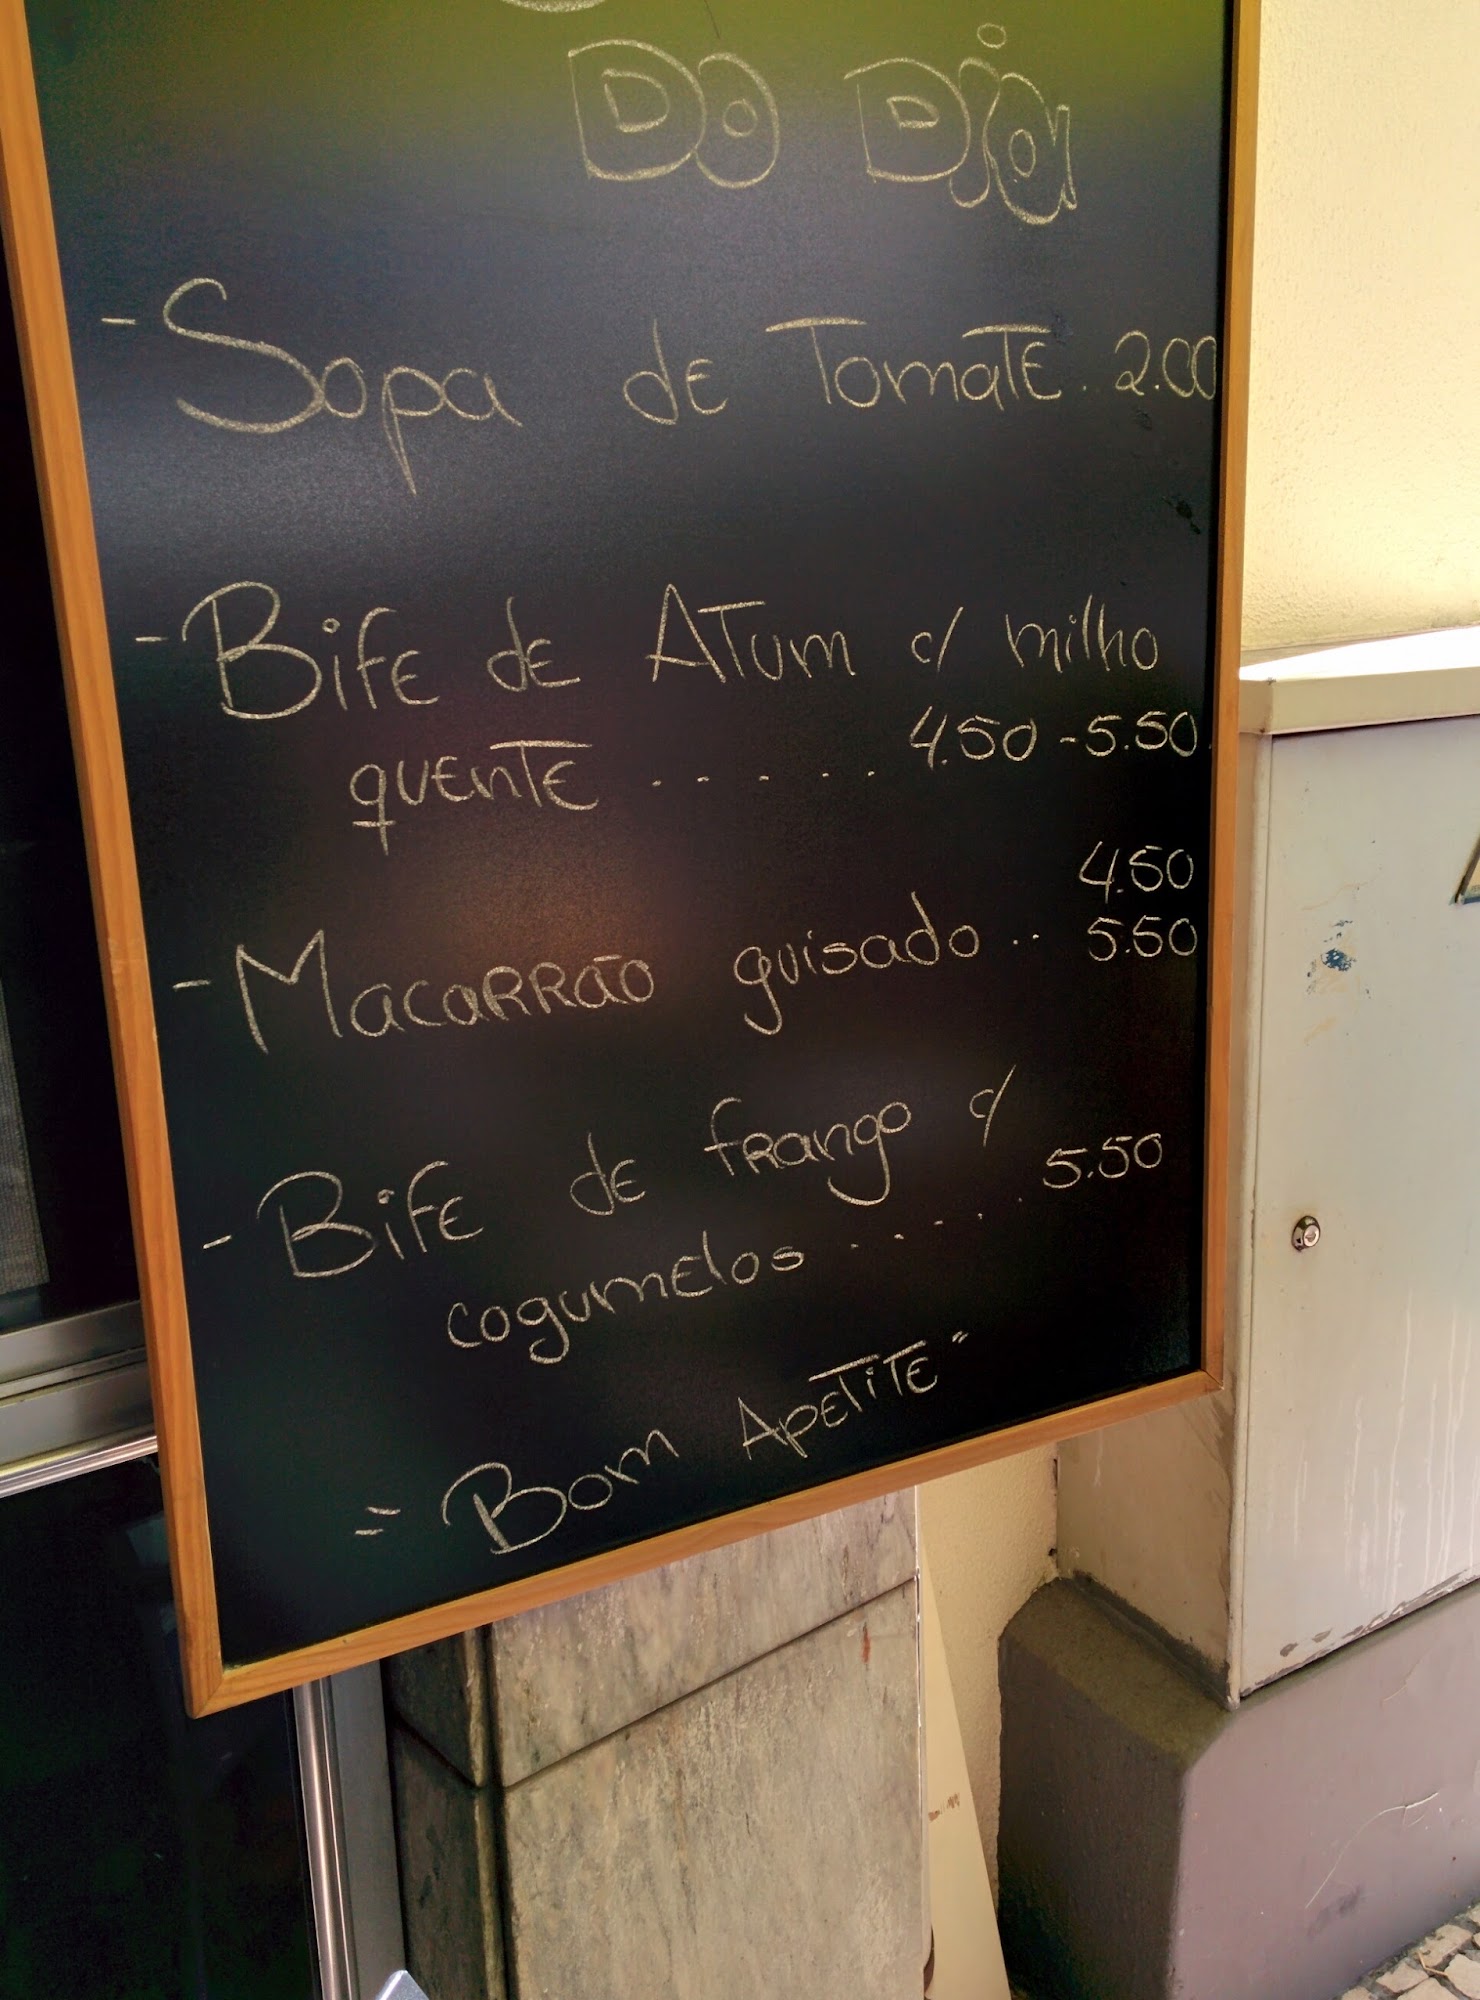 Do Dia
- Sopa de Tomate . 2.00
- Bife de Atum c/ milho
quente ...... 4.50 - 5.50
4.50
- Macarrão guisado .. 5.50
- Bife de frango c/
cogumelos ..... 5.50
"Bom Apetite"